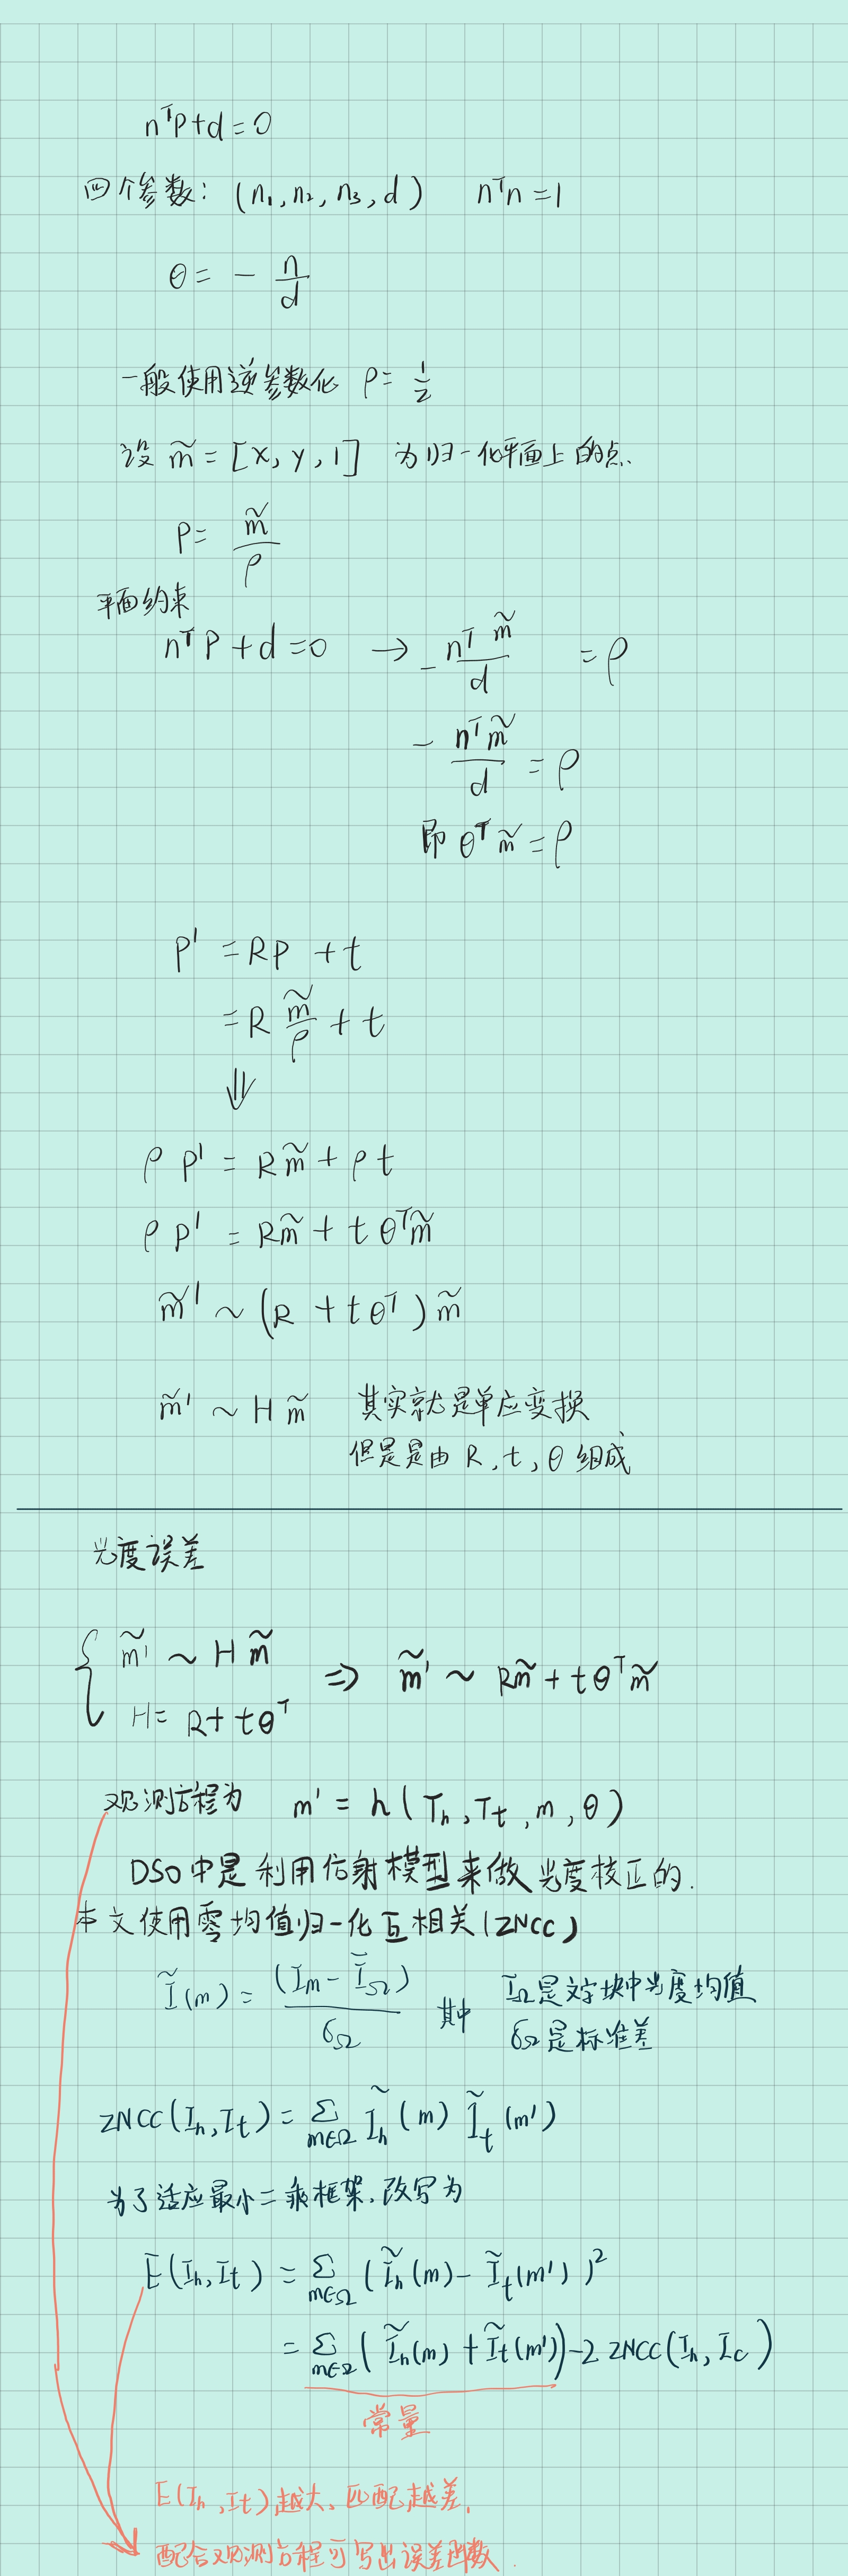 nᵀP+d=0
四个参数: (n₁, n₂, n₃, d) nᵀn=1
θ = - n/d
一般使用逆参数化 ρ = 1/z
设 m̃ = [x, y, 1] 为归一化平面上的点.
P = m̃/ρ
平面约束
nᵀP + d = 0 → - nᵀm̃/d = ρ
- nᵀm̃/d = ρ
即 θᵀm̃ = ρ
P' = RP + t
= R m̃/ρ + t
⇓
ρP' = Rm̃ + ρt
ρP' = Rm̃ + tθᵀm̃
m̃' ~ (R + tθᵀ) m̃
m̃' ~ H m̃ 其实就是单应变换
但是是由 R, t, θ 组成
光度误差
{ m̃' ~ H m̃
H = R + tθᵀ ⇒ m̃' ~ Rm̃ + tθᵀm̃
观测方程为 m' = h(Tₕ, Tₜ, m, θ)
DSO中是利用仿射模型来做光度校正的.
本文使用零均值归一化互相关(ZNCC)
Ĩ(m) = (Iₘ - Ī_Ω)/σ_Ω 其中 Ī_Ω是文字块中光度均值
σ_Ω是标准差
ZNCC(Iₕ, Iₜ) = Σ_{m∈Ω} Ĩₕ(m) Ĩₜ(m')
为了适应最小二乘框架, 改写为
E(Iₕ, Iₜ) = Σ_{m∈Ω} (Ĩₕ(m) - Ĩₜ(m'))²
= Σ_{m∈Ω} (Ĩₕ(m) + Ĩₜ(m')) - 2 ZNCC(Iₕ, I_c)
常量
E(Iₕ, Iₜ)越大、匹配越差.
配合观测方程可写出误差函数.